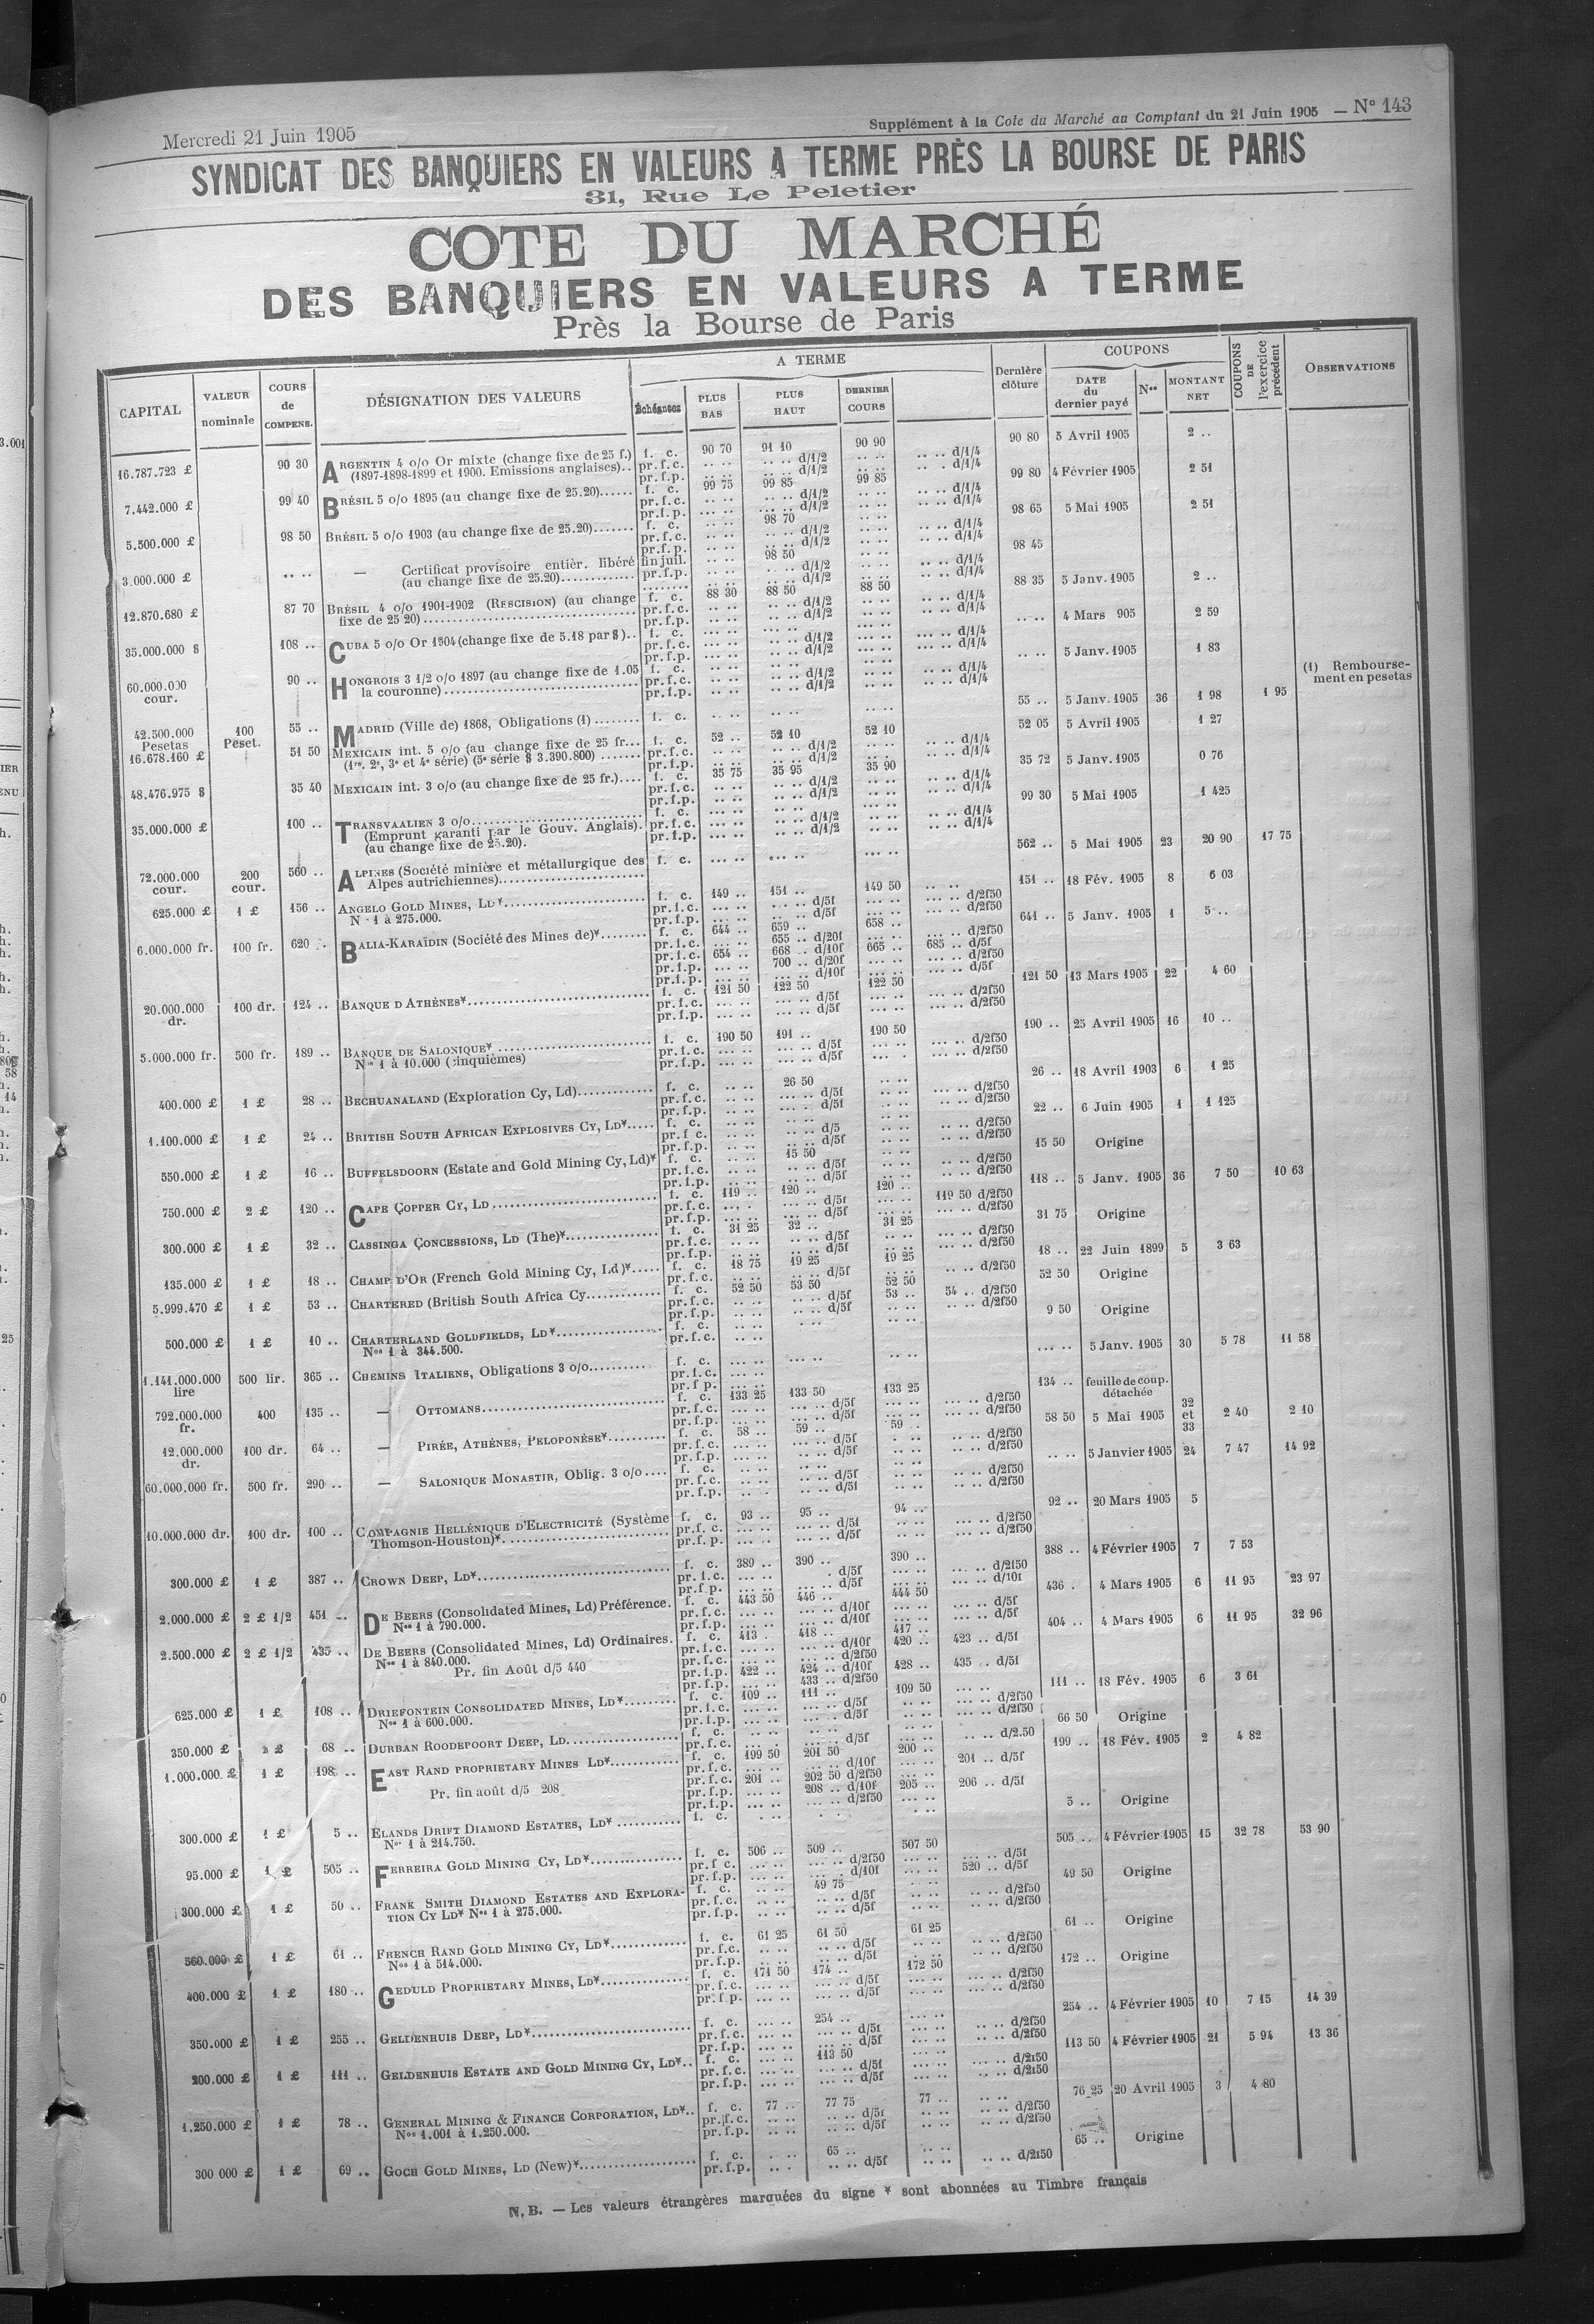 Mercredi 21 Juin 1905
Supplément à la Cote du Marché au Comptant du 21 Juin 1905 — N° 143
SYNDICAT DES BANQUIERS EN VALEURS A TERME PRÈS LA BOURSE DE PARIS
31, Rue Le Peletier
COTE DU MARCHÉ
DES BANQUIERS EN VALEURS A TERME
Près la Bourse de Paris
CAPITAL
VALEUR nominale
COURS de COMPENS.
DÉSIGNATION DES VALEURS
A TERME
Échéances
PLUS BAS
PLUS HAUT
DERNIER COURS
Dernière clôture
COUPONS
DATE du dernier payé
Nos
MONTANT NET
COUPONS DE l'exercice précédent
OBSERVATIONS
16.787.723 £ 90 30 ARGENTIN 4 o/o Or mixte (change fixe de 25 f.) f. c. 90 70 91 10 90 90 90 80 5 Avril 1905 2 ..
(1897-1898-1899 et 1900. Emissions anglaises).. pr.f.c. .. .. .. .. d/1/2 .. .. .. .. d/1/4
7.442.000 £ 99 40 BRÉSIL 5 o/o 1895 (au change fixe de 25.20)...... f. c. 99 75 99 85 99 85 99 80 4 Février 1905 2 51
5.500.000 £ 98 50 BRÉSIL 5 o/o 1903 (au change fixe de 25.20)....... f. c. .. .. 98 70 .. .. 98 65 5 Mai 1905 2 51
3.000.000 £ .. .. — Certificat provisoire entièr. libéré fin juil. .. .. 98 50 .. .. 98 45
(au change fixe de 25.20)............. pr.f.p.
12.870.680 £ 87 70 BRÉSIL 4 o/o 1901-1902 (RESCISION) (au change f. c. 88 30 88 50 88 50 88 35 5 Janv. 1905 2 ..
fixe de 25 20)
35.000.000 $ 108 .. CUBA 5 o/o Or 1904 (change fixe de 5.18 par $).. f. c. .. .. 4 Mars 905 2 59
60.000.000 cour. 90 .. HONGROIS 3 1/2 o/o 1897 (au change fixe de 1.05 f. c. .. .. 5 Janv. 1905 1 83
la couronne)
(1) Remboursement en pesetas
42.500.000 Pesetas 100 Peset. 55 .. MADRID (Ville de) 1868, Obligations (1) ........ f. c. 55 .. 5 Janv. 1905 36 1 98 1 95
16.678.160 £ 51 50 MEXICAIN int. 5 o/o (au change fixe de 25 fr... f. c. 52 .. 52 10 52 10 52 05 5 Avril 1905 1 27
(1re. 2e, 3e et 4e série) (5e série $ 3.390.800)
48.476.975 $ 35 40 MEXICAIN int. 3 o/o (au change fixe de 25 fr.).... f. c. 35 75 35 95 35 90 35 72 5 Janv. 1905 0 76
35.000.000 £ 100 .. TRANSVAALIEN 3 o/o f. c. 99 30 5 Mai 1905 1 425
(Emprunt garanti par le Gouv. Anglais).
(au change fixe de 25.20).
72.000.000 cour. 200 cour. 560 .. ALPINES (Société minière et métallurgique des f. c. 562 .. 5 Mai 1905 23 20 90 17 75
Alpes autrichiennes)
625.000 £ 1 £ 156 .. ANGELO GOLD MINES, LD* f. c. 149 .. 151 .. 149 50 151 .. 18 Fév. 1905 8 6 03
N° 1 à 275.000.
6.000.000 fr. 100 fr. 620 .. BALIA-KARAÏDIN (Société des Mines de)* f. c. 644 .. 659 .. 658 .. 641 .. 5 Janv. 1905 1 5 ..
pr.f.c. .. .. 655 .. d/20f .. .. .. .. d/2f50
pr.f.c. 654 .. 668 .. d/10f 665 .. 685 .. d/5f
pr.f.p. .. .. 700 .. d/20f .. .. .. .. d/2f50
pr.f.p. .. .. .. .. d/10f .. .. .. .. d/5f
20.000.000 dr. 100 dr. 124 .. BANQUE D'ATHÈNES* f. c. 121 50 122 50 122 50 121 50 13 Mars 1905 22 4 60
5.000.000 fr. 500 fr. 189 .. BANQUE DE SALONIQUE* f. c. 190 50 191 .. 190 50 190 .. 25 Avril 1905 16 10 ..
Nos 1 à 10.000 (cinquièmes)
400.000 £ 1 £ 28 .. BECHUANALAND (Exploration Cy, Ld) f. c. .. .. 26 50 .. .. 26 .. 18 Avril 1903 6 1 25
1.100.000 £ 1 £ 24 .. BRITISH SOUTH AFRICAN EXPLOSIVES CY, LD* f. c. 22 .. 6 Juin 1905 1 1 125
550.000 £ 1 £ 16 .. BUFFELSDOORN (Estate and Gold Mining Cy, Ld)* f. c. .. .. 15 50 .. .. 15 50 Origine
750.000 £ 2 £ 120 .. CAPE COPPER CY, LD f. c. 119 .. 120 .. 120 .. 119 50 d/2f50 118 .. 5 Janv. 1905 36 7 50 10 63
300.000 £ 1 £ 32 .. CASSINGA CONCESSIONS, LD (The)* f. c. 31 25 32 .. 31 25 31 75 Origine
135.000 £ 1 £ 18 .. CHAMP D'OR (French Gold Mining Cy, Ld)* f. c. 18 75 19 25 19 25 18 .. 22 Juin 1899 5 3 63
5.999.470 £ 1 £ 53 .. CHARTERED (British South Africa Cy f. c. 52 50 53 50 52 50 52 50 Origine
pr.f.c. .. .. .. .. d/5f 53 .. 54 .. d/2f50
500.000 £ 1 £ 10 .. CHARTERLAND GOLDFIELDS, LD* f. c. 9 50 Origine
Nos 1 à 344.500.
1.141.000.000 lire 500 lir. 365 .. CHEMINS ITALIENS, Obligations 3 o/o f. c. .. .. 5 Janv. 1905 30 5 78 11 58
792.000.000 fr. 400 135 .. — OTTOMANS f. c. 133 25 133 50 133 25 134 .. feuille de coup. détachée
12.000.000 dr. 100 dr. 64 .. — PIRÉE, ATHÈNES, PELOPONÈSE* f. c. 58 .. 59 .. 59 .. 58 50 5 Mai 1905 32 et 33 2 40 2 10
60.000.000 fr. 500 fr. 290 .. — SALONIQUE MONASTIR, Oblig. 3 o/o f. c. .. .. 5 Janvier 1905 24 7 47 14 92
10.000.000 dr. 100 dr. 100 .. COMPAGNIE HELLÉNIQUE D'ELECTRICITÉ (Système f. c. 93 .. 95 .. 94 .. 92 .. 20 Mars 1905 5
Thomson-Houston)*
300.000 £ 1 £ 387 .. CROWN DEEP, LD* f. c. 389 .. 390 .. 390 .. 388 .. 4 Février 1905 7 7 53
2.000.000 £ 2 £ 1/2 451 .. DE BEERS (Consolidated Mines, Ld) Préférence. f. c. 443 50 446 .. 444 50 436 . 4 Mars 1905 6 11 95 23 97
Nos 1 à 790.000.
2.500.000 £ 2 £ 1/2 435 .. DE BEERS (Consolidated Mines, Ld) Ordinaires. f. c. 413 . 418 .. 417 .. 404 .. 4 Mars 1905 6 11 95 32 96
Nos 1 à 840.000. pr.f.c. .. .. .. .. d/10f 420 .. 423 .. d/5f
Pr. fin Août d/5 440 pr.f.p. 422 .. 424 .. d/10f 428 .. 435 .. d/5f
pr.f.p. .. .. 433 .. d/2f50
625.000 £ 1 £ 108 .. DRIEFONTEIN CONSOLIDATED MINES, LD* f. c. 109 .. 111 .. 109 50 111 .. 18 Fév. 1905 6 3 61
Nos 1 à 600.000.
350.000 £ 68 .. DURBAN ROODEPOORT DEEP, LD f. c. 66 50 Origine
1.000.000 £ 1 £ 198 .. EAST RAND PROPRIETARY MINES LD* f. c. 199 50 201 50 200 .. 199 .. 18 Fév. 1905 2 4 82
pr.f.c. .. .. .. .. d/10f .. .. 201 .. d/5f
pr.f.c. 201 .. 202 50 d/2f50
Pr. fin août d/5 208 pr.f.p. .. .. 208 .. d/10f 205 .. 206 .. d/5f
300.000 £ 1 £ 5 .. ELANDS DRIFT DIAMOND ESTATES, LD* f. c. 5 .. Origine
Nos 1 à 214.750.
95.000 £ 1 £ 505 .. FERREIRA GOLD MINING CY, LD* f. c. 506 .. 509 .. 507 50 505 .. 4 Février 1905 15 32 78 53 90
pr.f.p. .. .. .. .. d/10f .. .. 520 .. d/5f
300.000 £ 1 £ 50 .. FRANK SMITH DIAMOND ESTATES AND EXPLORA- f. c. .. .. 49 75 .. .. 49 50 Origine
TION CY LD* Nos 1 à 275.000.
560.000 £ 1 £ 61 .. FRENCH RAND GOLD MINING CY, LD* f. c. 61 25 61 50 61 25 61 .. Origine
Nos 1 à 514.000.
400.000 £ 1 £ 180 .. GEDULD PROPRIETARY MINES, LD* f. c. 171 50 174 .. 172 50 172 .. Origine
350.000 £ 1 £ 255 .. GELDENHUIS DEEP, LD* f. c. .. .. 254 .. .. .. 254 .. 4 Février 1905 10 7 15 14 39
200.000 £ 1 £ 111 .. GELDENHUIS ESTATE AND GOLD MINING CY, LD* f. c. .. .. 113 50 .. .. 113 50 4 Février 1905 21 5 94 13 36
1.250.000 £ 1 £ 78 .. GENERAL MINING & FINANCE CORPORATION, LD* f. c. 77 .. 77 75 77 .. 76 25 20 Avril 1905 3 4 80
Nos 1.001 à 1.250.000.
300 000 £ 1 £ 69 .. GOCH GOLD MINES, LD (New)* f. c. .. .. 65 .. .. .. 65 .. Origine
pr.f.p. .. .. .. .. d/5f .. .. .. .. d/2f50
N. B. — Les valeurs étrangères marquées du signe * sont abonnées au Timbre français